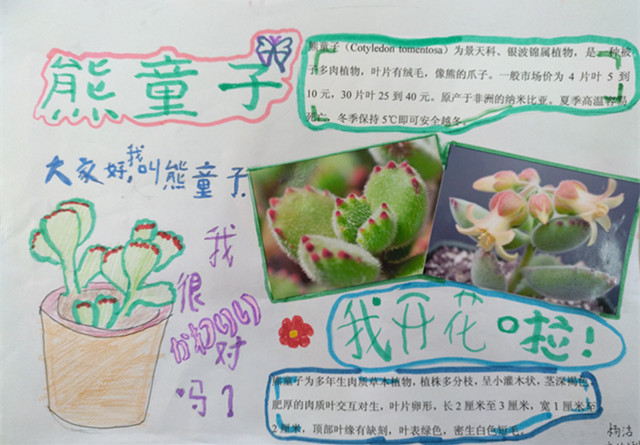 熊童子
熊童子（Cotyledon tomentosa）为景天科、银波锦属植物，是一种被
子多肉植物，叶片有绒毛，像熊的爪子。一般市场价为 4 片叶 5 到
10 元，30 片叶 25 到 40 元。原产于非洲的纳米比亚。夏季高温容易
死亡，冬季保持 5℃即可安全越冬。
大家好，我叫熊童子
我
很
かわいい
对
吗？
我开花啦！
熊童子为多年生肉质草本植物，植株多分枝，呈小灌木状，茎深褐色，
肥厚的肉质叶交互对生，叶片卵形，长 2 厘米至 3 厘米，宽 1 厘米至
2 厘米，顶部叶缘有缺刻，叶表绿色，密生白色短毛。
杨洁